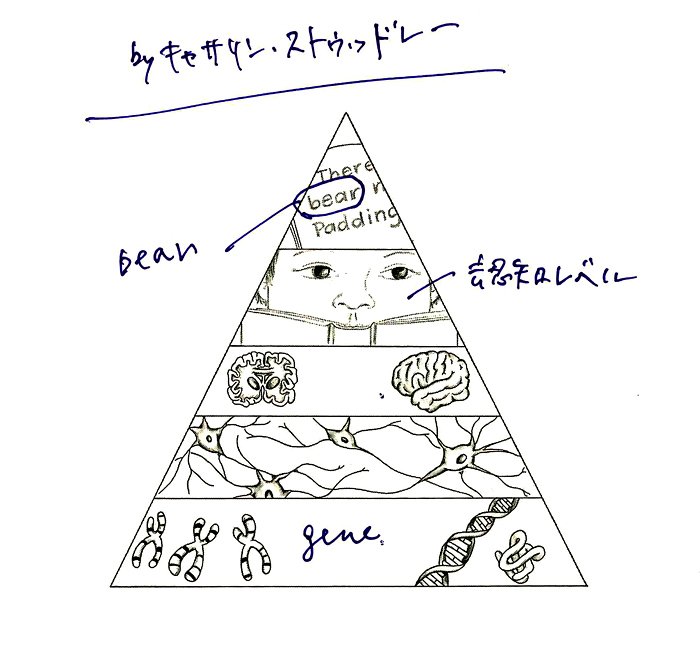 by キャサリン・ストウッドレー
There
bear n
Padding
bear
認知レベル
gene.